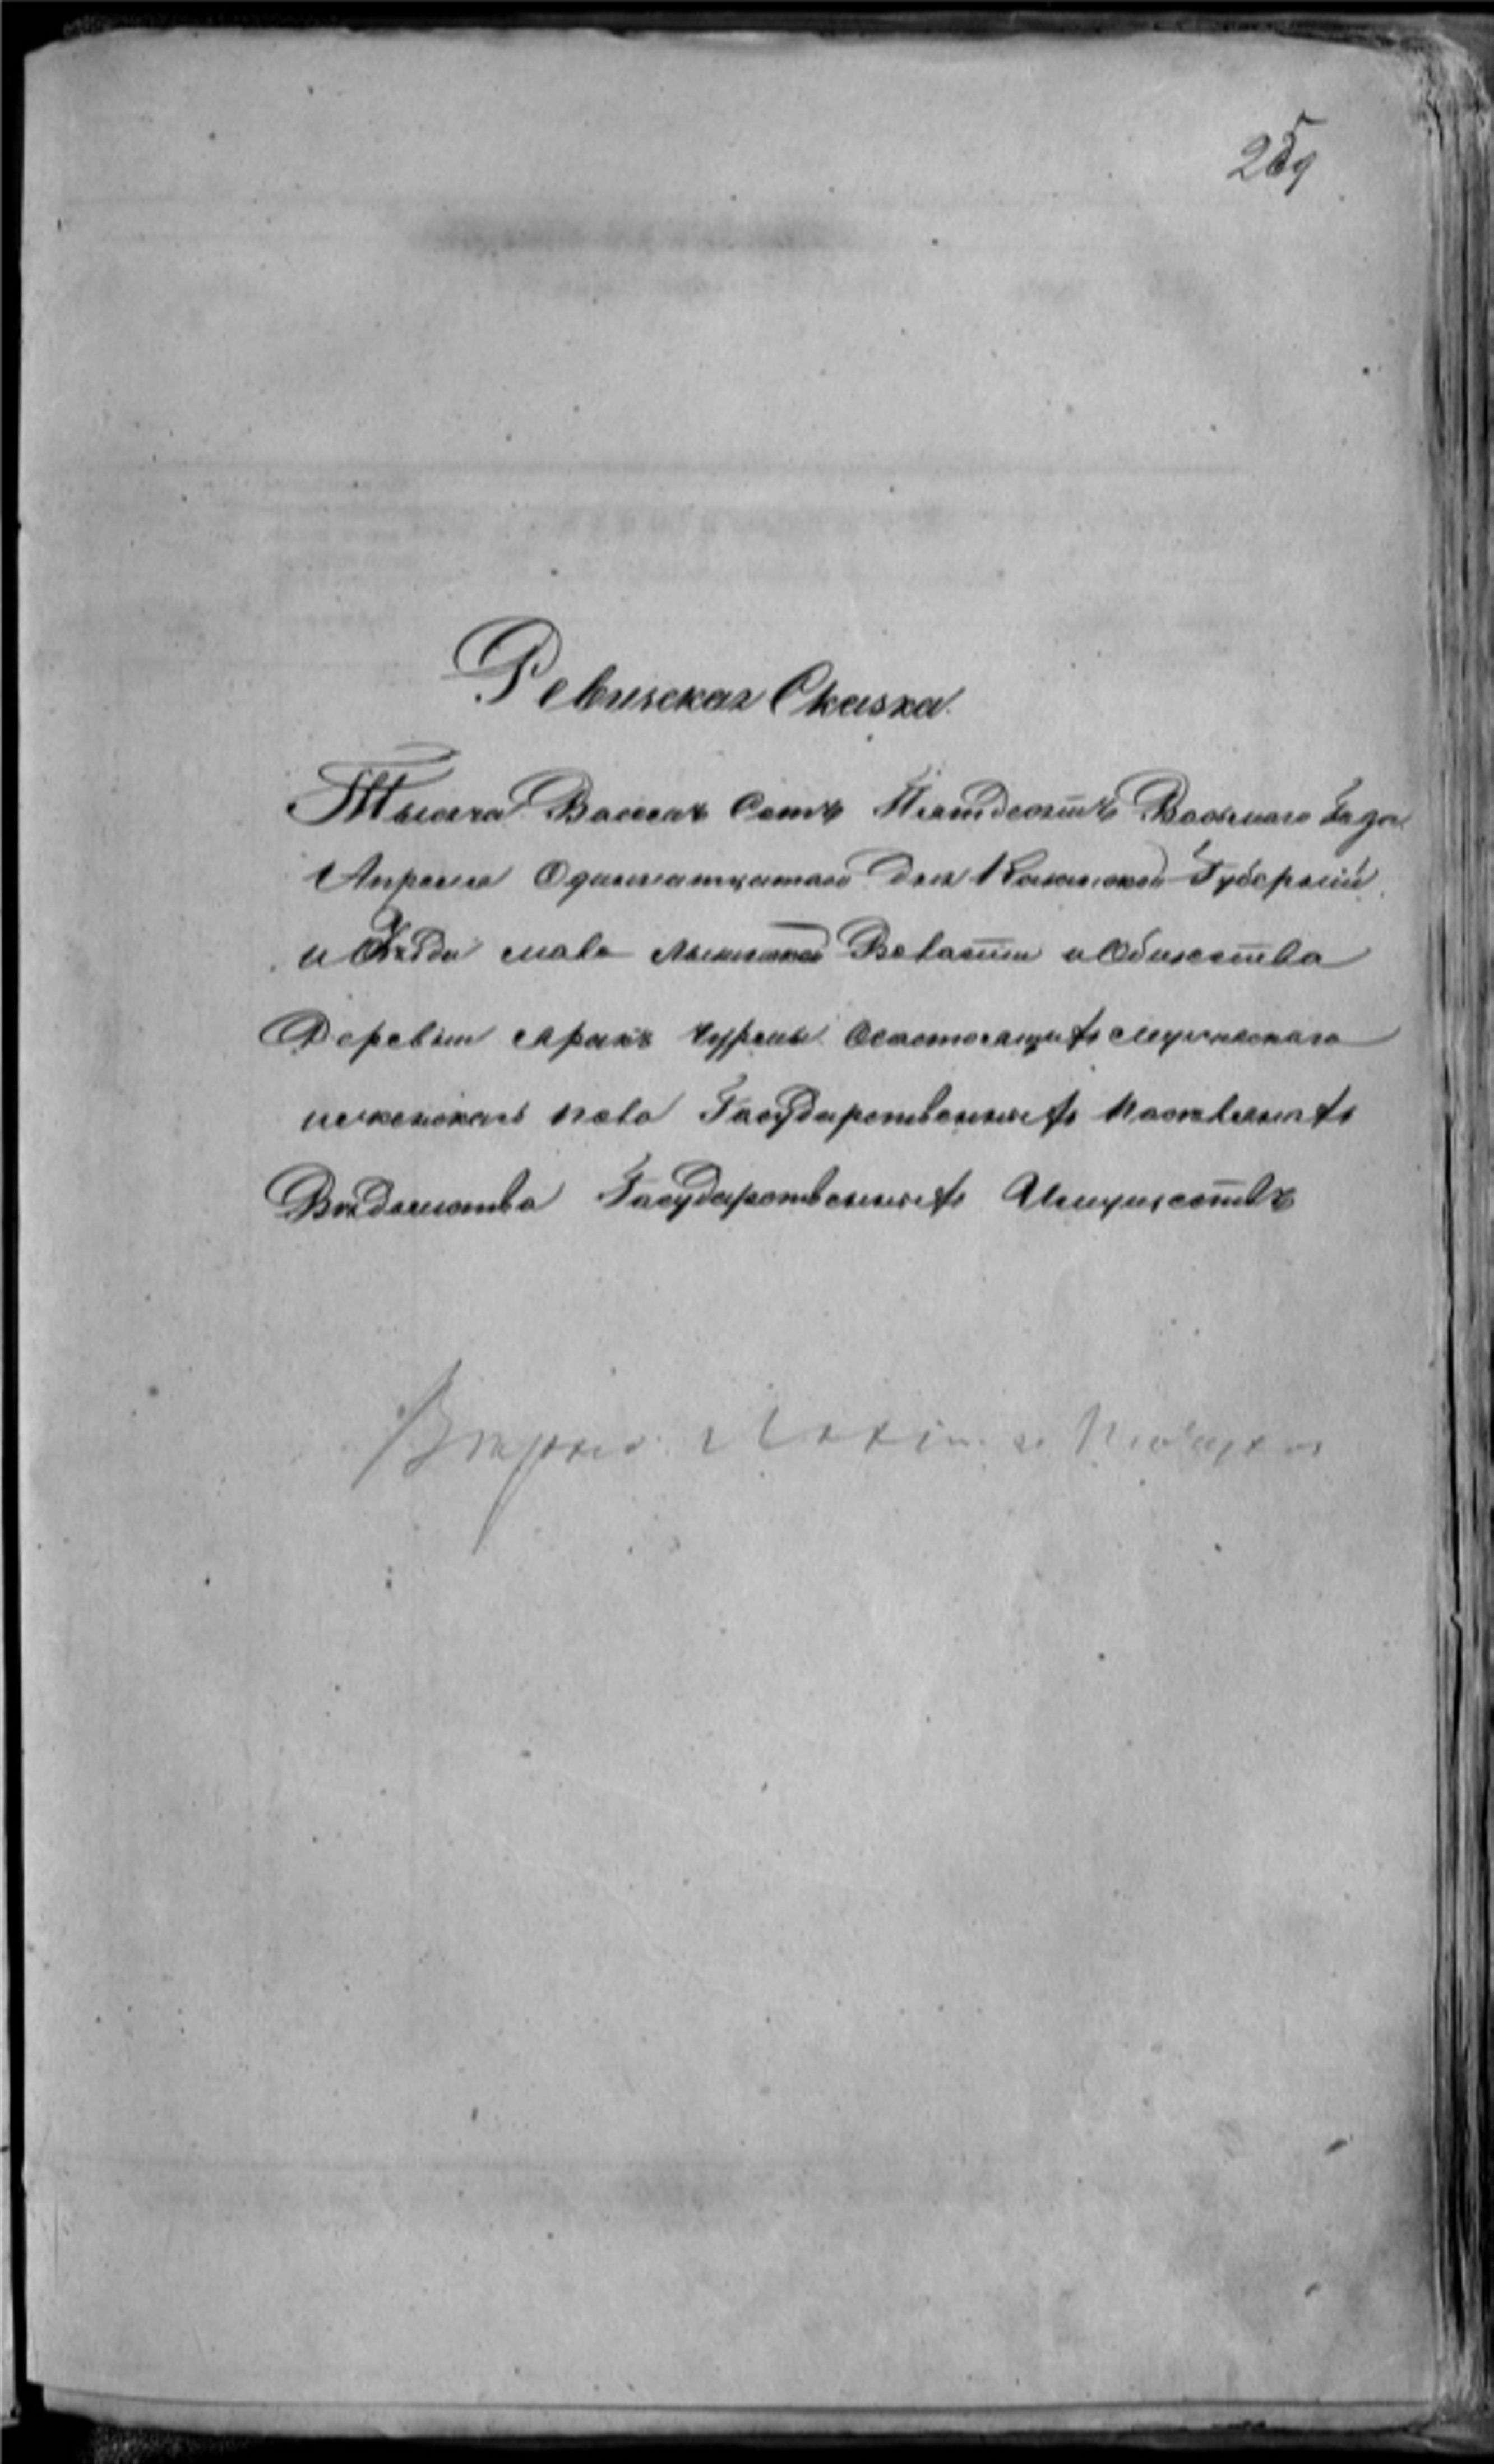 259
Ревизская Сказка
Тысяча Восемь Сотъ Пятдесятъ Восьмаго Года
Апреля Одиннатцатаго дня Казанской Губерніи
и Уѣзда мало Волости и Общества
Деревни Чурины Осостоящихъ Мужескаго
иженскаго пола Государственныхъ
Вѣдомства Государственныхъ Имуществъ